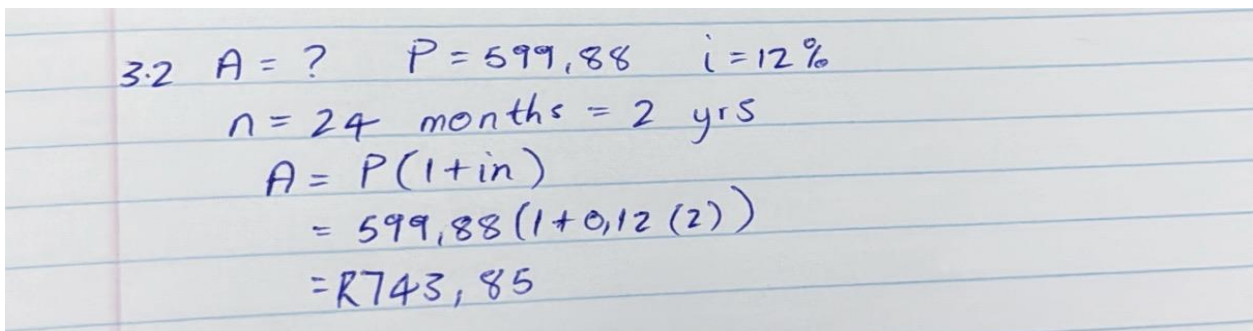 3.2 A = ? P = 599,88 i = 12%
n = 24 months = 2 yrs
A = P(1+in)
= 599,88(1+0,12(2))
=R743,85